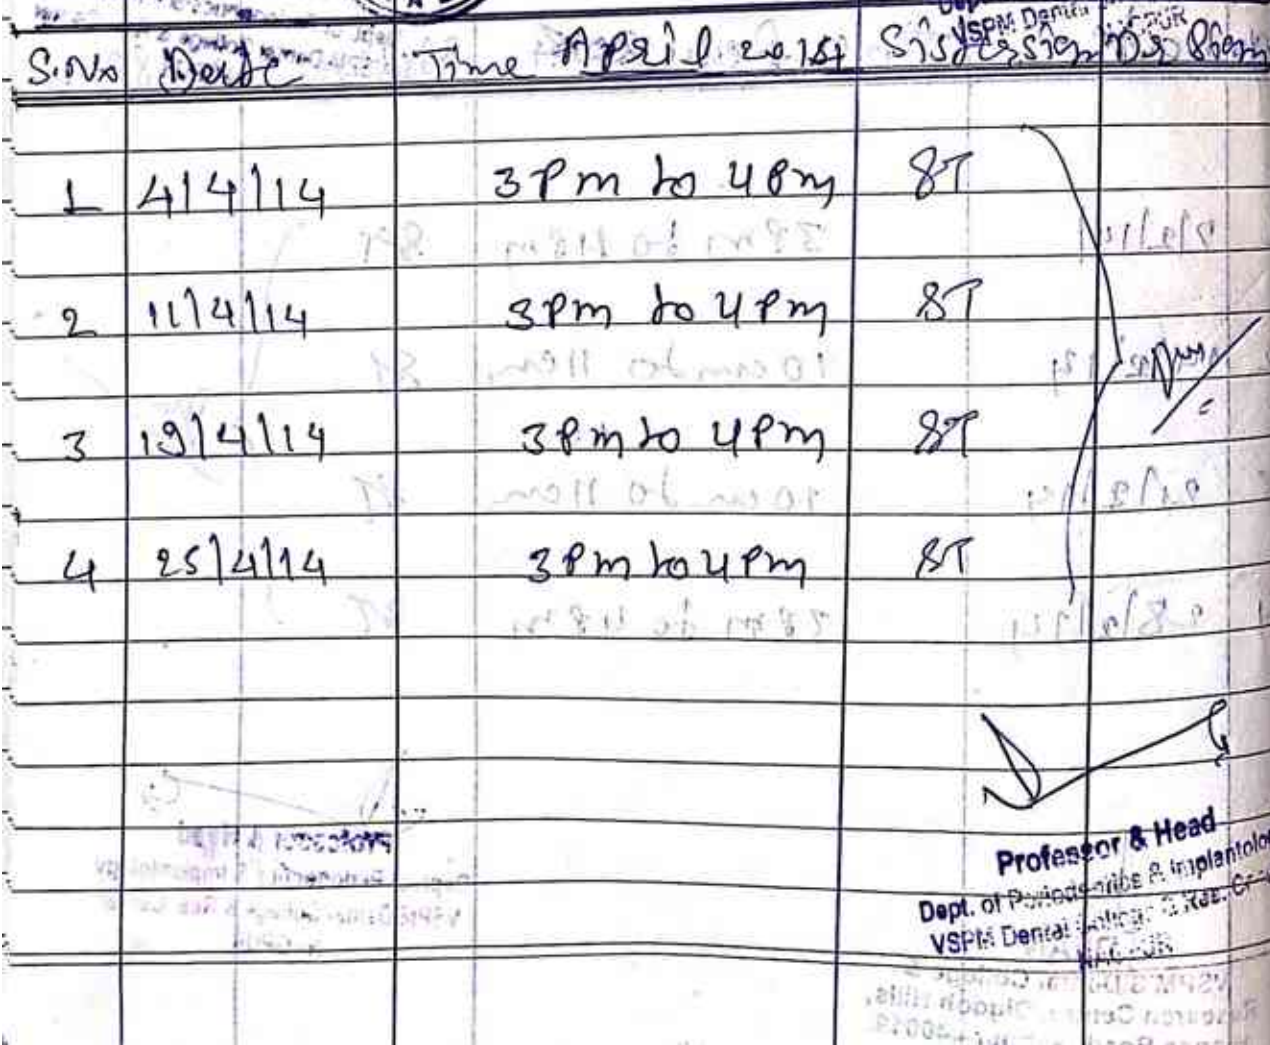 VSPM Dental
S.No Date Time April 2014 Sister sign Dr Sign
1 4/4/14 3Pm to 4Pm ST
2 11/4/14 3Pm to 4Pm ST
3 19/4/14 3Pm to 4Pm ST
4 25/4/14 3Pm to 4Pm ST
Professor & Head
Dept. of Periodontics & Implantolo
VSPM Dental College & Res. Ce
NAGPUR